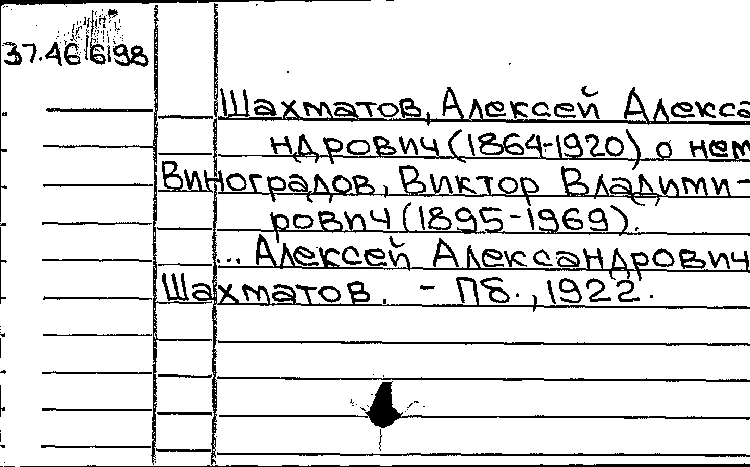 37.46 6 98
Шахматов, Алексей Алекса
ндрович (1864-1920) о нем
Виноградов, Виктор Владими-
рович (1895-1969).
... Алексей Александрович
Шахматов. - Пб., 1922.